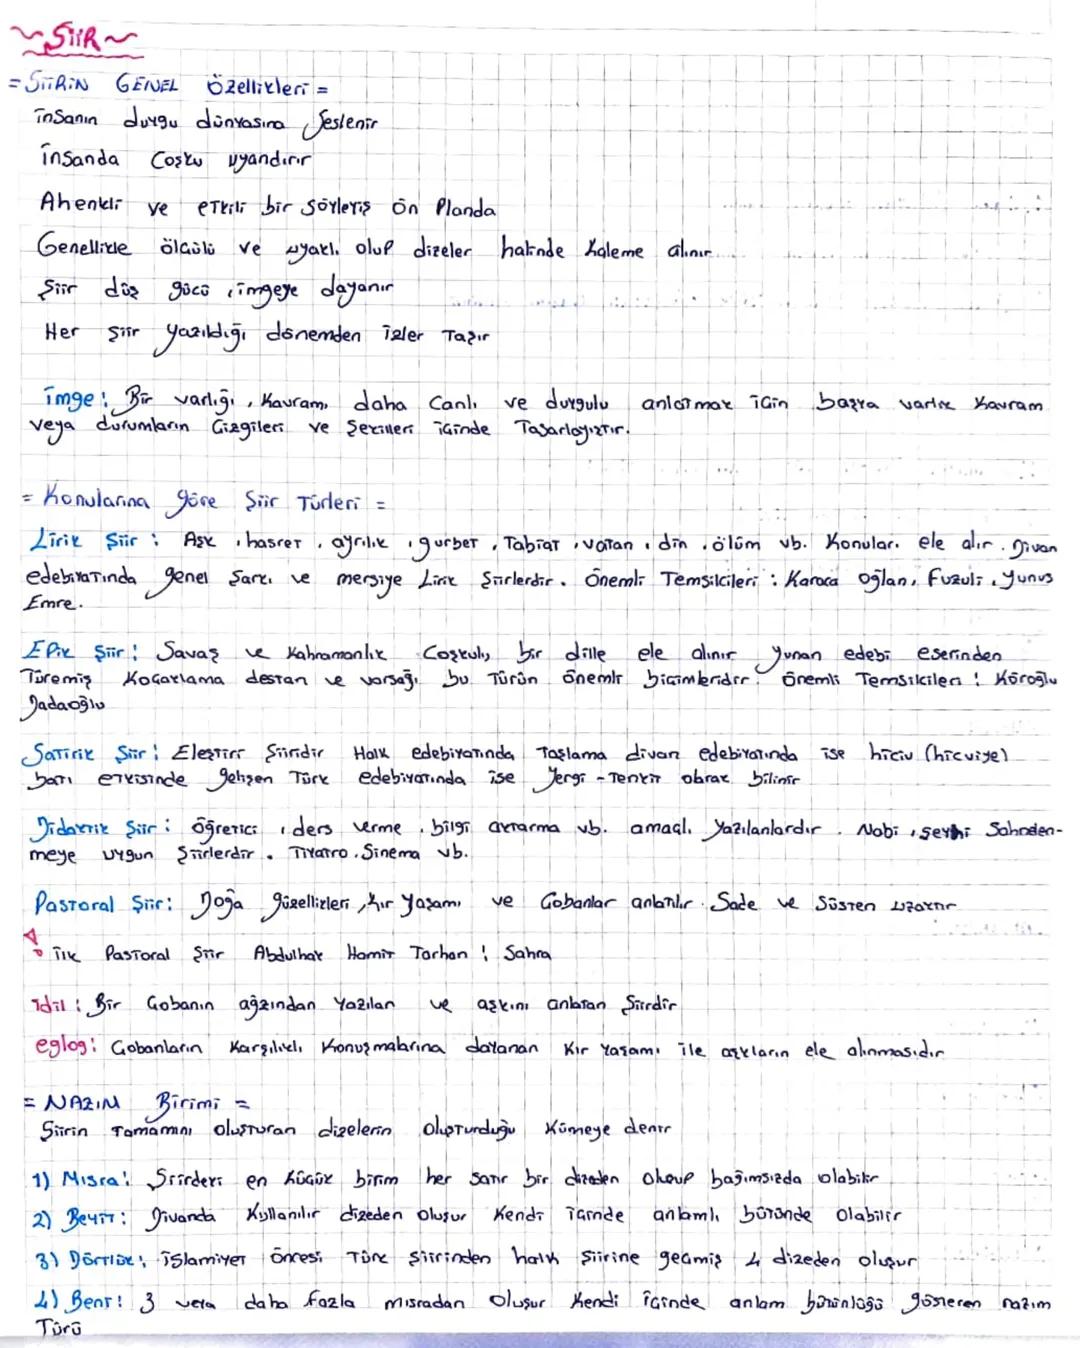 ~ŞİİR~
= ŞİİRİN GENEL Özellikleri =
insanın duygu dünyasına seslenir
insanda Coşku uyandırır
Ahenkli ve etkili bir söyleyiş ön Planda
Genellikle ölçülü ve uyaklı olup dizeler halinde kaleme alınır
Şiir düş gücü, imgeye dayanır
Her şiir yazıldığı dönemden izler Taşır
imge: Bir varlığı, Kavramı daha Canlı ve duygulu anlatmak için başka varlık Kavram
veya durumların Çizgileri ve Şekilleri içinde Tasarlayıştır.
= Konularına göre Şiir Türleri =
Lirik Şiir: Aşk, hasret, ayrılık, gurbet, Tabiat, vatan, din, ölüm vb. Konuları ele alır. Divan
edebiyatında genel Şarkı ve mersiye Lirik Şiirlerdir. Önemli Temsilcileri: Karaca oğlan, Fuzuli, Yunus
Emre.
Epik Şiir: Savaş ve Kahramanlık Coşkulu bir dille ele alınır Yunan edebi eserinden
Türemiş Koçaklama destan ve varsağı bu Türün önemli biçimleridir. Önemli Temsilcileri: Köroğlu
Dadaoğlu
Satirik Şiir: Eleştiri Şiiridir Halk edebiyatında Taşlama divan edebiyatında ise hiciv (hicviye)
batı etkisinde gelişen Türk edebiyatında ise Yergi - Tenkit olarak bilinir
Didaktik Şiir: Öğretici, ders verme, bilgi aktarma vb. amaçlı yazılanlardır. Nabi, şeyhi Sahnelen-
meye uygun Şiirlerdir. Tiyatro, Sinema vb.
Pastoral Şiir: Doğa güzellikleri, kır Yaşamı ve Çobanlar anlatılır. Sade ve Süsten uzaktır
ilk Pastoral Şiir Abdulhak Hamit Tarhan: Sahra
idil: Bir Çobanın ağzından Yazılan ve aşkını anlatan Şiirdir
eglog: Çobanların Karşılıklı Konuşmalarına dayanan Kır Yaşamı ile aşkların ele alınmasıdır
= NAZIM Birimi =
Şiirin Tamamını oluşturan dizelerin oluşturduğu Kümeye denir
1) Mısra: Şiirdeki en küçük birim her satır bir dizeden oluşup bağımsızda olabilir
2) Beyit: Divanda Kullanılır dizeden oluşur Kendi içinde anlamlı bütünde olabilir
3) Dörtlük: İslamiyet öncesi Türk Şiirinden halk Şiirine geçmiş 4 dizeden oluşur
4) Bent: 3 veya daha fazla mısradan oluşur Kendi içinde anlam bütünlüğü gösteren nazım
Türü